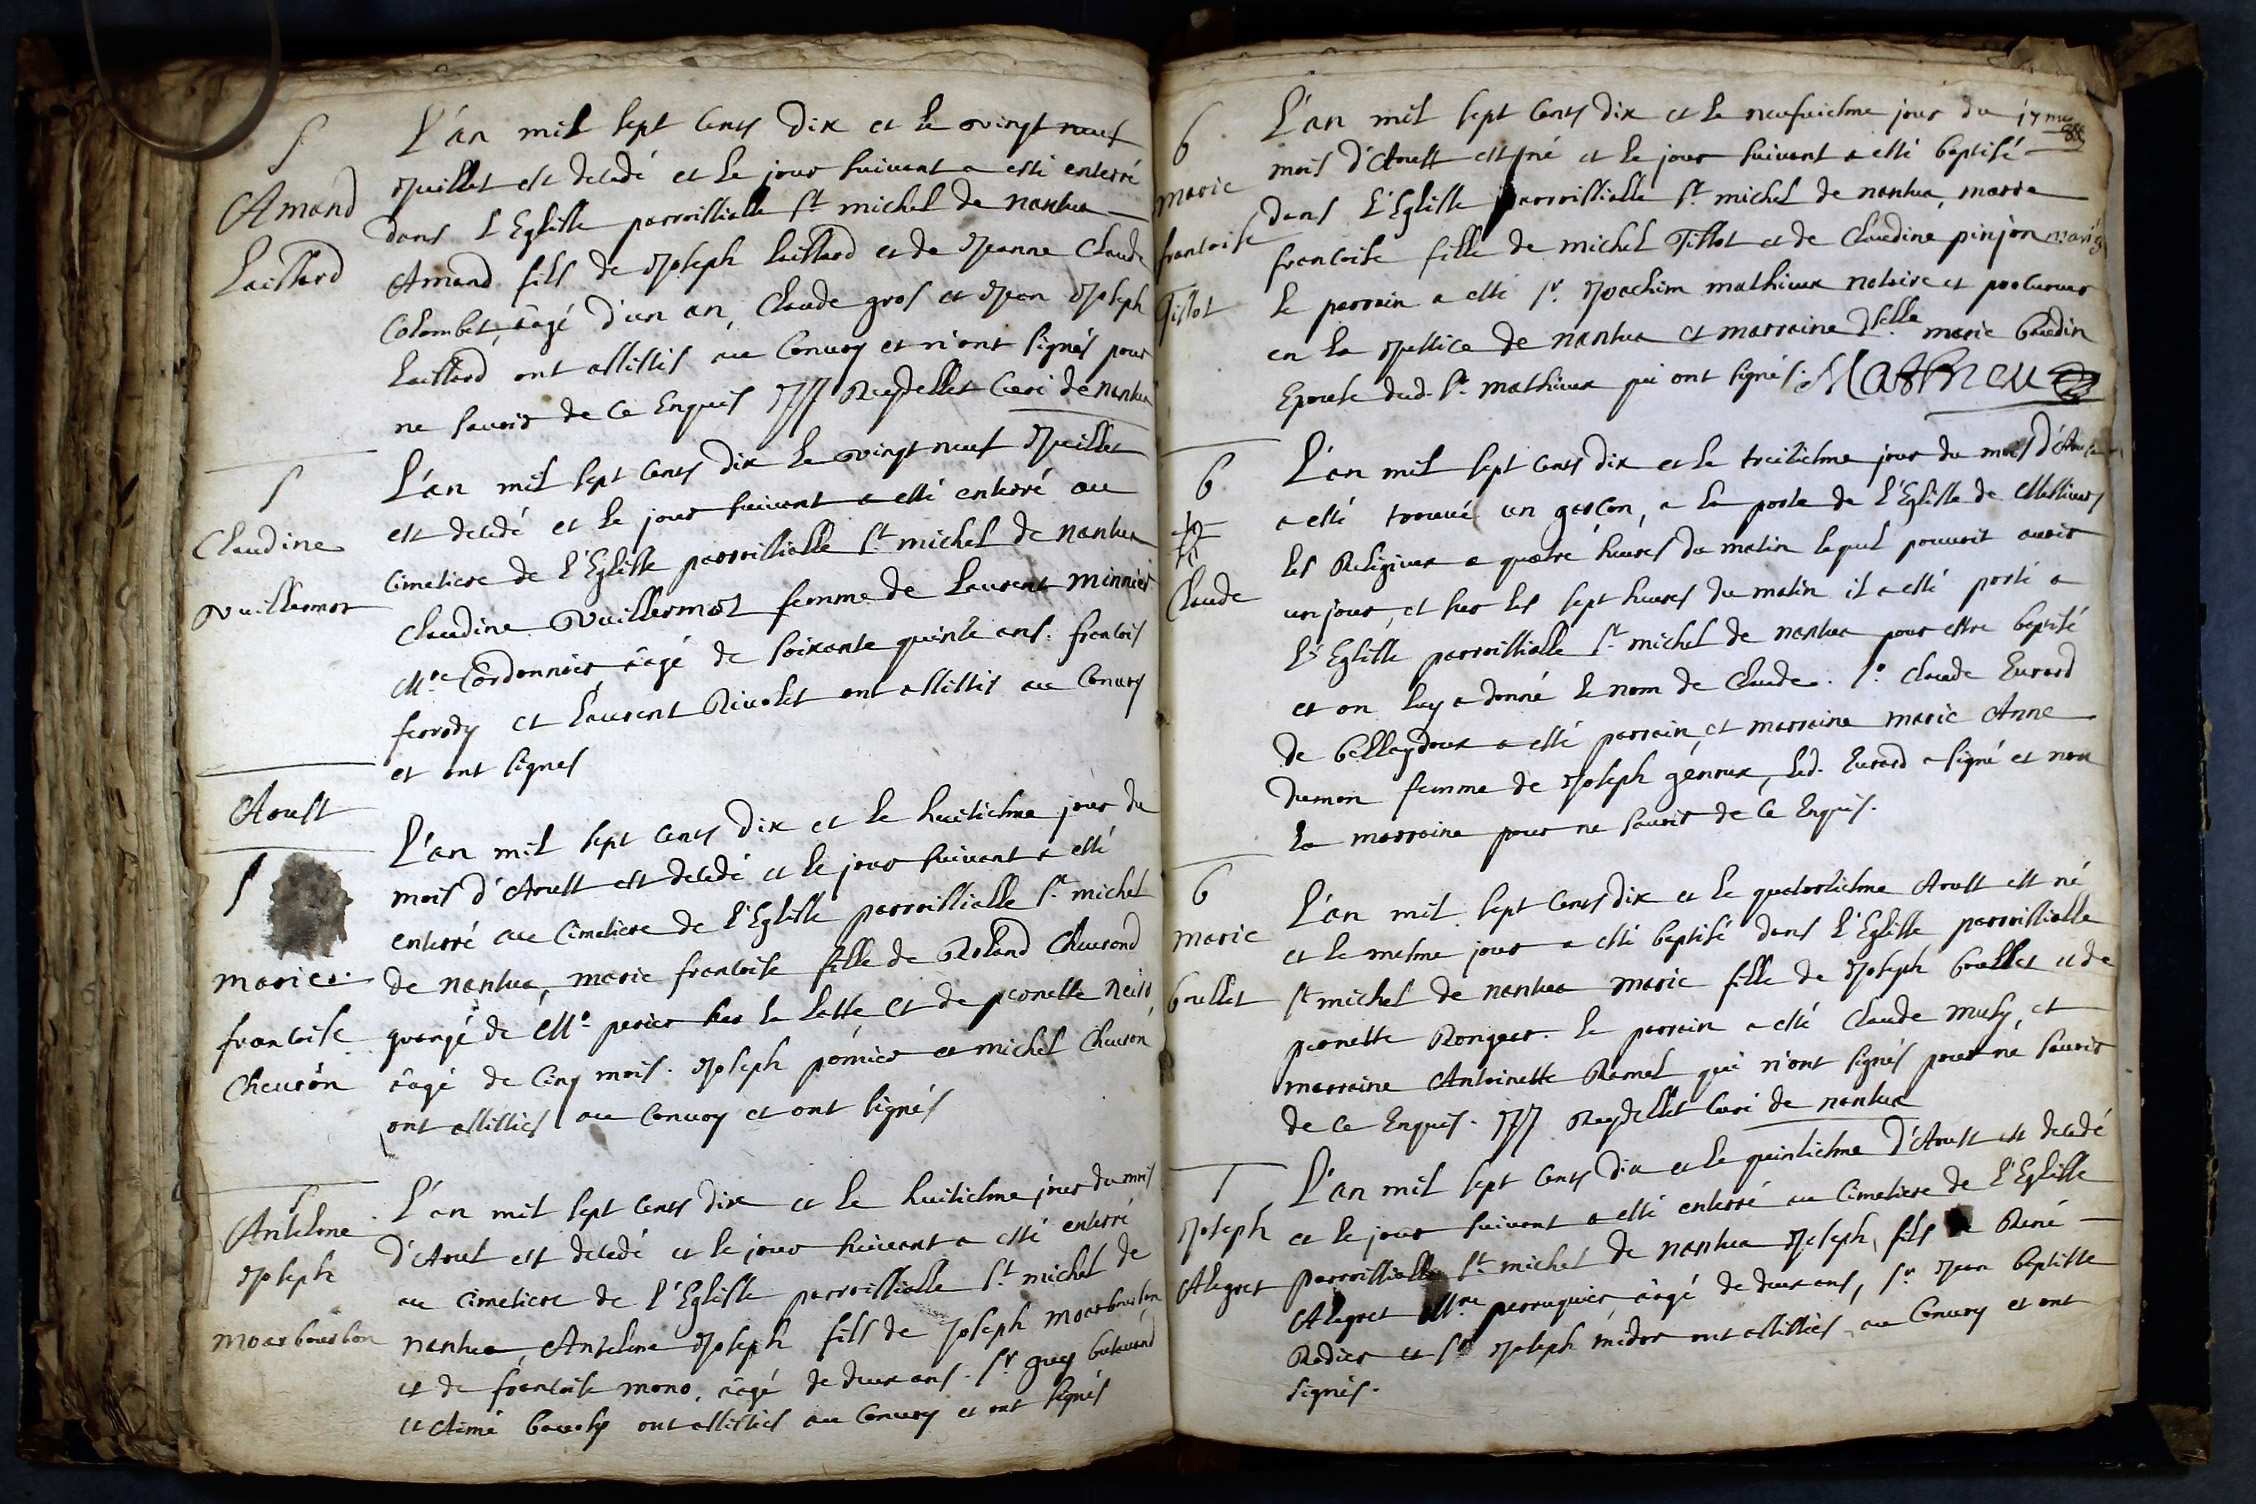 S
Amand
Laissard
L'an mil sept cents dix et le vingt neuf
Juillet est decedé et le jour suivant a esté enterré
dans l'Eglise parroissialle St michel de nantua
Amand fils de Joseph Laissard et de Jeanne Claude
Colombet, âagé d'un an, Claude gros et Jean Joseph
Laissard ont assistés au Convoy et n'ont signés pour
ne savoir de ce Enquis JJ Reydellet Curé de nantua
S
Claudine
Vuillermoz
L'an mil sept cents dix le vingt neuf Juillet
est decedé et le jour suivant a esté enterré au
Cimetiere de l'Eglise parroissialle St michel de nantua
Claudine Vuillermoz femme de Laurent minnier
Me Cordonnier, âagé de soixante quinze ans. francois
ferrody et Laurent Rivolet ont assistés au Convoy
et ont signes
Aoust
S
marie
francoise
Cheuron
L'an mil sept cents dix et le huitiesme jour du
mois d'Aoust est decedé et le jour suivant a esté
enterré au Cimetiere de l'Eglise parroissialle St michel
de nantua, marie francoise fille de Roland Cheuron
grangé de Me perier sur la Latte et de peronette
âagé de Cinq mois. Joseph pomier et michel Cheuron
ont assistés au Convoy et ont signés
S
Antelme
Joseph
moarbourbon
L'an mil sept cents dix et le huitiesme jour du mois
d'Aout est decedé et le jour suivant a esté enterré
au cimetiere de l'Eglise parroissialle St michel de
nantua, Antelme Joseph fils de Joseph moarbourbon
et de francoise mono, âagé de deux ans. Sr guy butavand
et Aimé ont assistés au Convoy et ont signés
B
marie
francoise
Tissot
L'an mil sept cents dix et le neufviesme jour du
88
mois d'Aoust est né et le jour suivant a esté baptisé
dans l'Eglise parroissialle St michel de nantua, marie
francoise fille de michel Tissot et de Claudine pinjon mariés
le parrain a esté Sr Joachim mathieux notaire et procureur
en la Justice de nantua et marraine Dselle marie baudin
Epouse dud. Sr mathieux qui ont signés. Mathieu
B
Claude
L'an mil sept cents dix et le treiziesme jour du mois d'Aoust
a esté trouvé un garcon, a la porte de l'Eglise de Messieurs
les Religieux a quatre heures du matin lequel pouvoit avoir
un jour, et sur les sept heures du matin il a esté porté a
l'Eglise parroissialle St michel de nantua pour estre baptisé
et on luy a donné le nom de Claude. Sr Claude Evrard
de bellaydoux a esté parrain, et marraine marie Anne
dumon femme de Joseph genoux, led. Evrard a signé et non
la marraine pour ne savoir de ce Enquis.
B
marie
brullet
L'an mil sept cents dix et le quatorziesme Aoust est né
et le mesme jour a esté baptisé dans l'Eglise parroissialle
St michel de nantua marie fille de Joseph brullet et de
peronette Ronger. le parrain a esté Claude musy, et
marraine Antoinette Ramel qui n'ont signés pour ne savoir
de ce Enquis. JJ Reydellet Curé de nantua
S
Joseph
Alegret
L'an mil sept cents dix et le quinziesme d'Aoust est decedé
et le jour suivant a esté enterré au Cimetiere de l'Eglise
parroissialle St michel de nantua Joseph, fils de René
Alegret Mtre perruquier, âagé de deux ans, Sr Jean baptiste
Rodier et Sr Joseph midor ont assistés au Convoy et ont
signés.